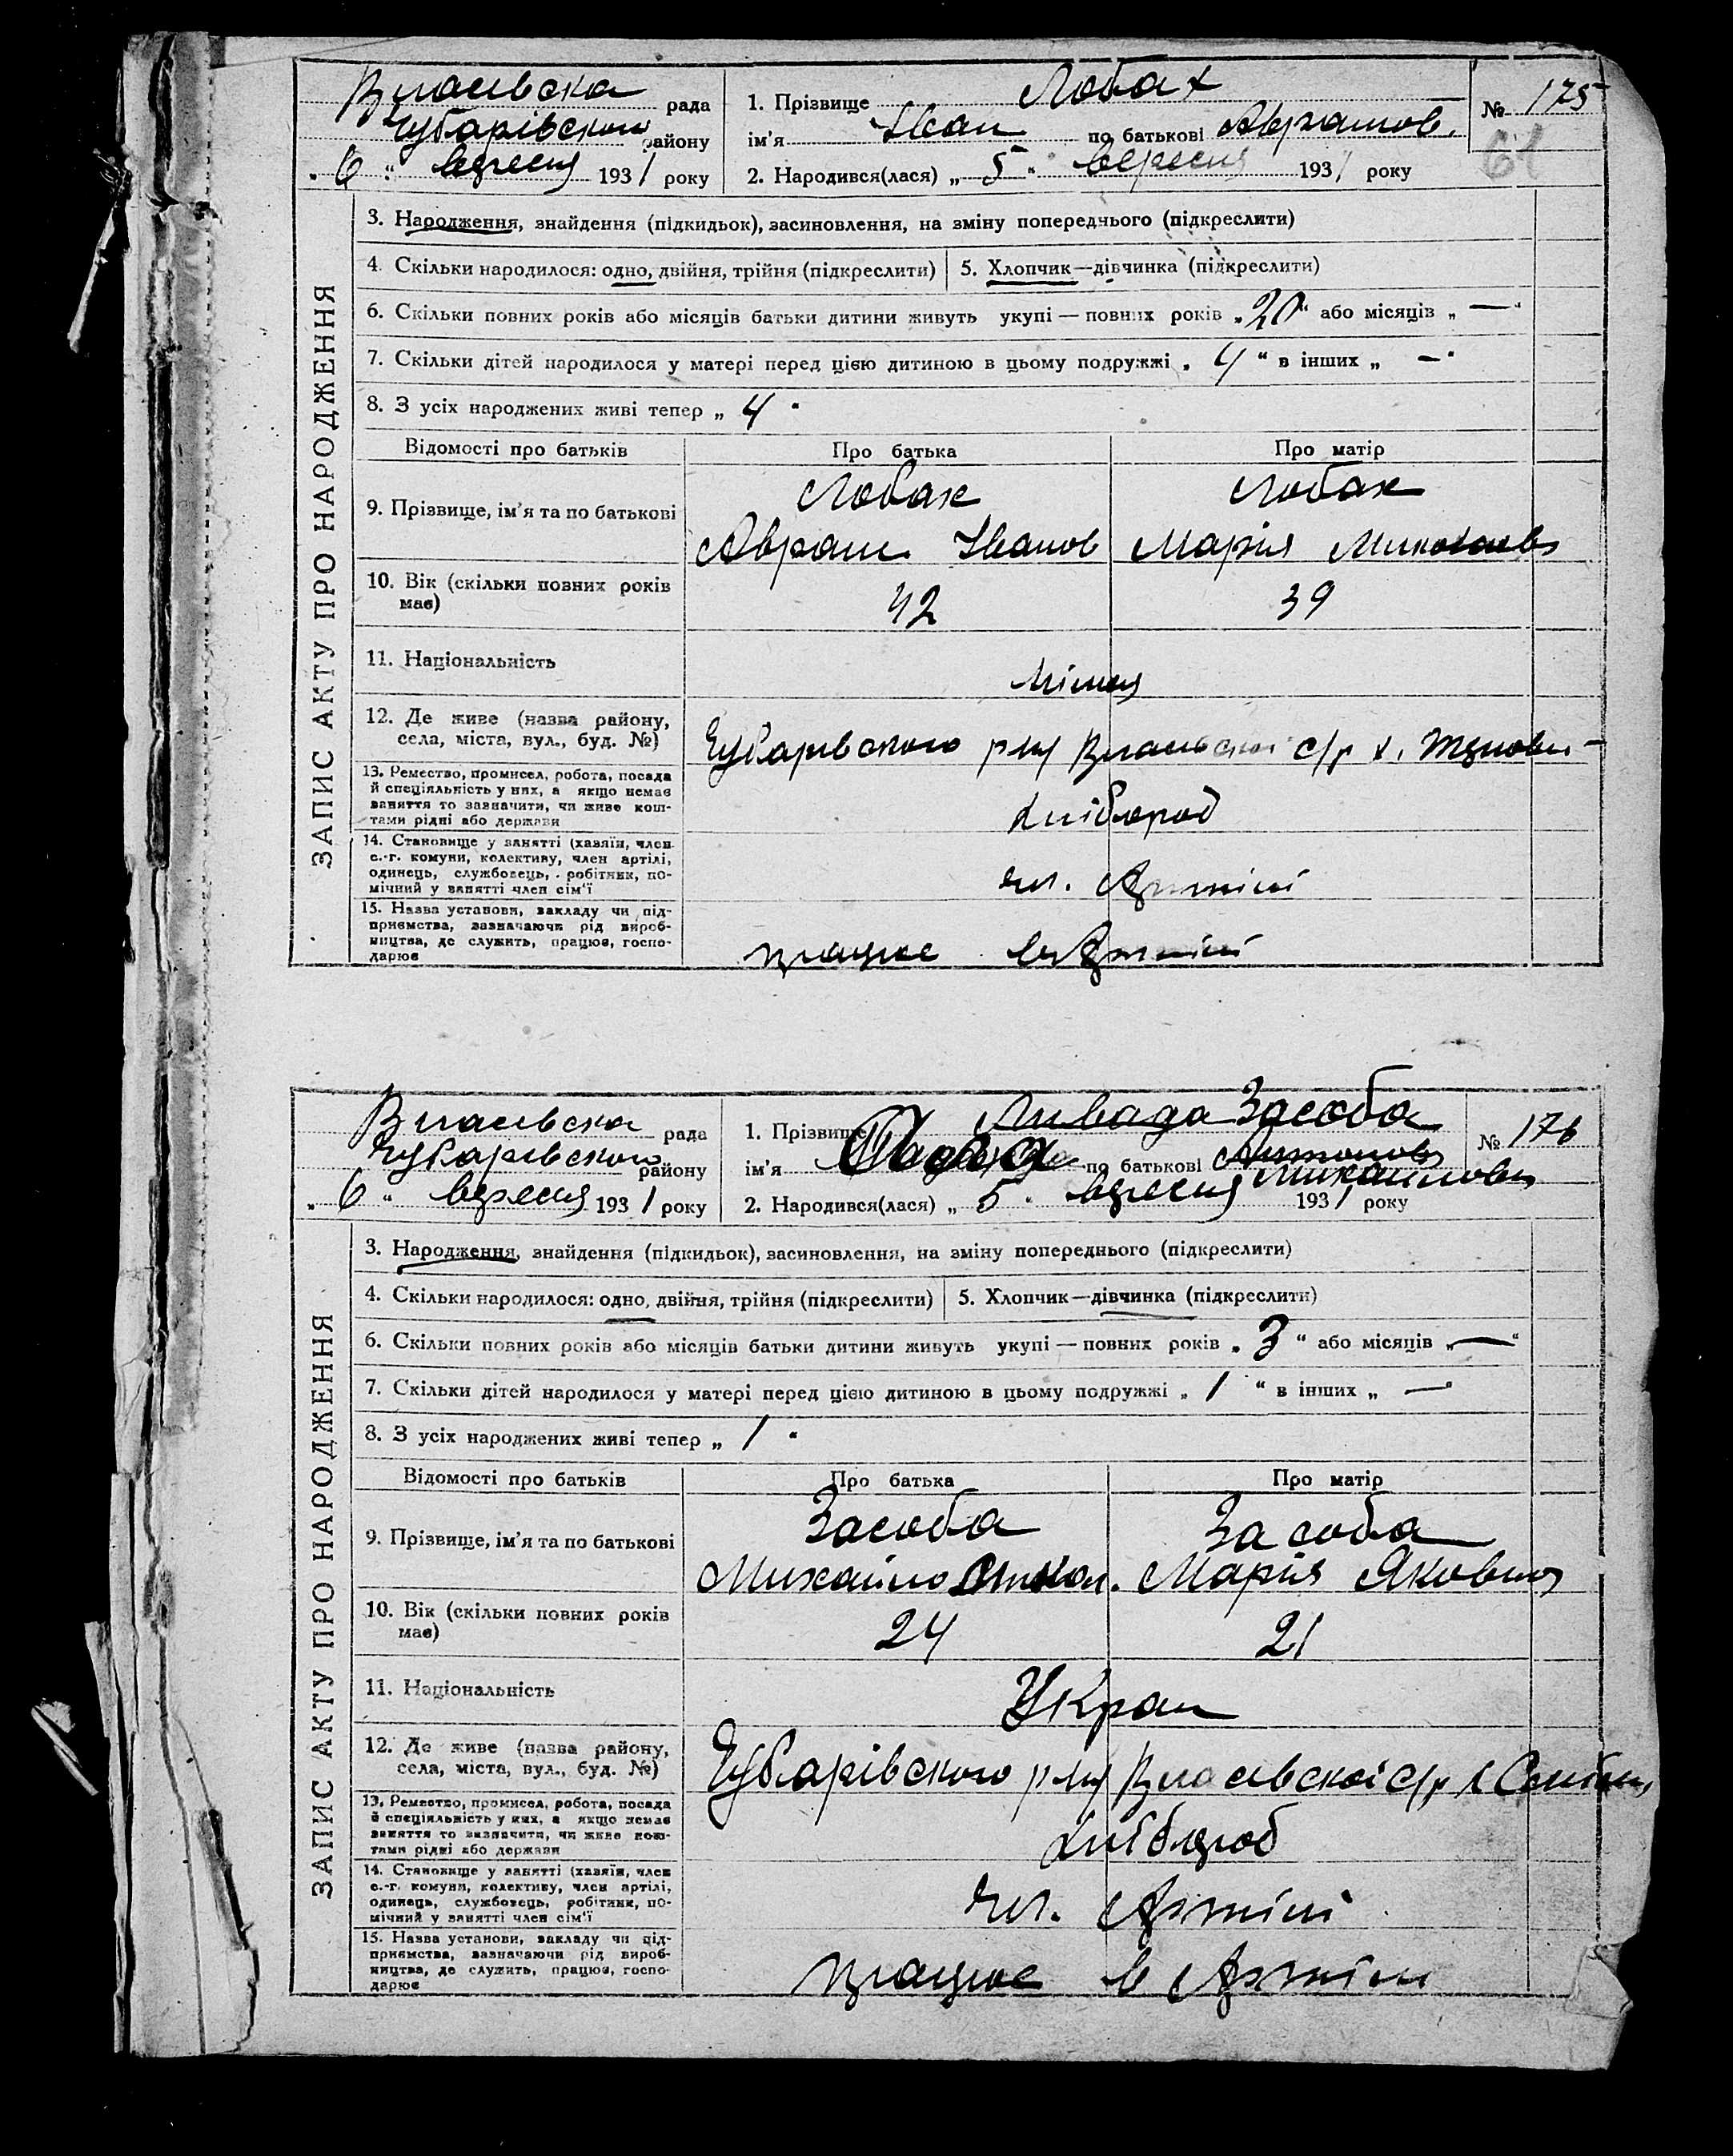 Власівска рада
Чубарівского району
„ 6 “ вересня 1931 року
1. Прізвище Лобах
ім'я Іван по батькові Аврамов.
2. Народився(лася) „ 5 “ вересня 1931 року
№ 175
61
ЗАПИС АКТУ ПРО НАРОДЖЕННЯ
3. Народження, знайдення (підкидьок), засиновлення, на зміну попереднього (підкреслити)
4. Скільки народилося: одно, двійня, трійня (підкреслити)
5. Хлопчик—дівчинка (підкреслити)
6. Скільки повних років або місяців батьки дитини живуть укупі — повних років „ 20 “ або місяців „ — “
7. Скільки дітей народилося у матері перед цією дитиною в цьому подружжі „ 4 “ в інших „ — “
8. З усіх народжених живі тепер „ 4 “
Відомості про батьків Про батька Про матір
9. Прізвище, ім'я та по батькові
Лобах Лобах
Аврам Іванов Марія Миколаєв
10. Вік (скільки повних років має)
42 39
11. Національність
німці
12. Де живе (назва району,
села, міста, вул., буд. №)
Чубарівского р-ну Власівскої с/р х.
13. Ремество, промисел, робота, посада
й спеціяльність у них, а якщо немає
заняття то зазначити, чи живе кош-
тами рідні або держави
хлібороб
14. Становище у занятті (хазяїн, член
с.-г. комуни, колективу, член артілі,
одинець, службовець, робітник, по-
мічний у занятті член сім'ї
чл. Артілі
15. Назва установи, закладу чи під-
приємства, зазначаючи рід вироб-
ництва, де служить, працює, госпо-
дарює
працює в Артілі
Власівска рада
Чубарівского району
„ 6 “ вересня 1931 року
1. Прізвище Засоба
ім'я по батькові Антонов
Михайлов
2. Народився(лася) „ 5 “ вересня 1931 року
№ 176
ЗАПИС АКТУ ПРО НАРОДЖЕННЯ
3. Народження, знайдення (підкидьок), засиновлення, на зміну попереднього (підкреслити)
4. Скільки народилося: одно, двійня, трійня (підкреслити)
5. Хлопчик—дівчинка (підкреслити)
6. Скільки повних років або місяців батьки дитини живуть укупі — повних років „ 3 “ або місяців „ — “
7. Скільки дітей народилося у матері перед цією дитиною в цьому подружжі „ 1 “ в інших „ — “
8. З усіх народжених живі тепер „ 1 “
Відомості про батьків Про батька Про матір
9. Прізвище, ім'я та по батькові
Засоба Засоба
Михайло Марія Яковна
10. Вік (скільки повних років має)
24 21
11. Національність
Укран
12. Де живе (назва району,
села, міста, вул., буд. №)
Чубарівского р-ну Власівскої с/р х
13. Ремество, промисел, робота, посада
й спеціяльність у них, а якщо немає
заняття то зазначити, чи живе кош-
тами рідні або держави
хлібороб
14. Становище у занятті (хазяїн, член
с.-г. комуни, колективу, член артілі,
одинець, службовець, робітник, по-
мічний у занятті член сім'ї
чл. Артілі
15. Назва установи, закладу чи під-
приємства, зазначаючи рід вироб-
ництва, де служить, працює, госпо-
дарює
працює в Артілі